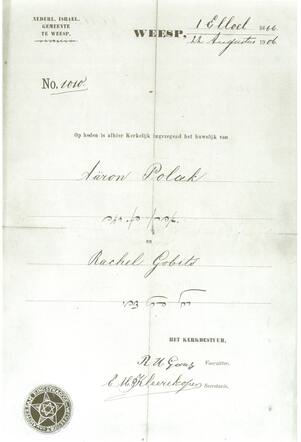 NEDERL. ISRAEL.
GEMEENTE
TE WEESP.
WEESP, 1 Elloel 5666
22 Augustus 1906
No. 1010
Op heden is alhier Kerkelijk ingezegend het huwelijk van
Aäron Polak
en
Rachel Gobits
HET KERKBESTUUR,
Voorzitter.
Secretaris.